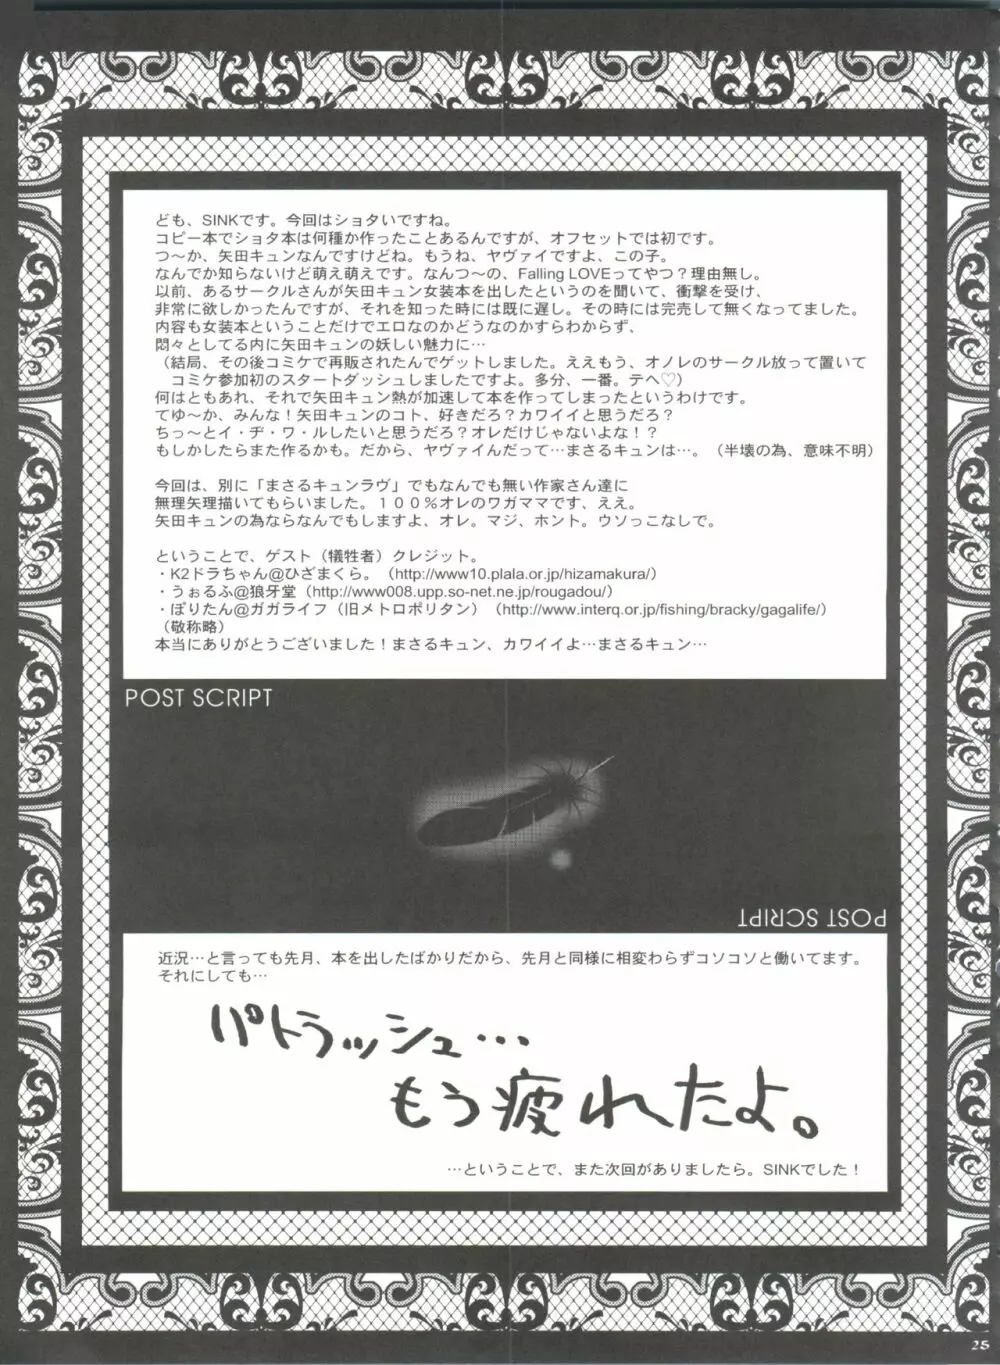 ども、SINKです。今回はショタいですね。
コピー本でショタ本は何種か作ったことあるんですが、オフセットでは初です。
つ〜か、矢田キュンなんですけどね。もうね、ヤヴァイですよ、この子。
なんでか知らないけど萌え萌えです。なんつ〜の、Falling LOVEってやつ？理由無し。
以前、あるサークルさんが矢田キュン女装本を出したというのを聞いて、衝撃を受け、
非常に欲しかったんですが、それを知った時には既に遅し。その時には完売して無くなってました。
内容も女装本ということだけでエロなのかどうなのかすらわからず、
悶々としてる内に矢田キュンの妖しい魅力に…
（結局、その後コミケで再販されたんでゲットしました。ええもう、オノレのサークル放って置いて
コミケ参加初のスタートダッシュしましたですよ。多分、一番。テヘ♡）
何はともあれ、それで矢田キュン熱が加速して本を作ってしまったというわけです。
てゆ〜か、みんな！矢田キュンのコト、好きだろ？カワイイと思うだろ？
ちっ〜とイ・ヂ・ワ・ルしたいと思うだろ？オレだけじゃないよな！？
もしかしたらまた作るかも。だから、ヤヴァイんだって…まさるキュンは…。（半壊の為、意味不明）
今回は、別に「まさるキュンラヴ」でもなんでも無い作家さん達に
無理矢理描いてもらいました。１００％オレのワガママです、ええ。
矢田キュンの為ならなんでもしますよ、オレ。マジ、ホント。ウソっこなしで。
ということで、ゲスト（犠牲者）クレジット。
・K2ドラちゃん@ひざまくら。（http://www10.plala.or.jp/hizamakura/）
・うぉるふ@狼牙堂（http://www008.upp.so-net.ne.jp/rougadou/）
・ぽりたん@ガガライフ（旧メトロポリタン）（http://www.interq.or.jp/fishing/bracky/gagalife/）
（敬称略）
本当にありがとうございました！まさるキュン、カワイイよ…まさるキュン…
POST SCRIPT
POST SCRIPT
近況…と言っても先月、本を出したばかりだから、先月と同様に相変わらずコソコソと働いてます。
それにしても…
パトラッシュ…
もう疲れたよ。
…ということで、また次回がありましたら。SINKでした！
25